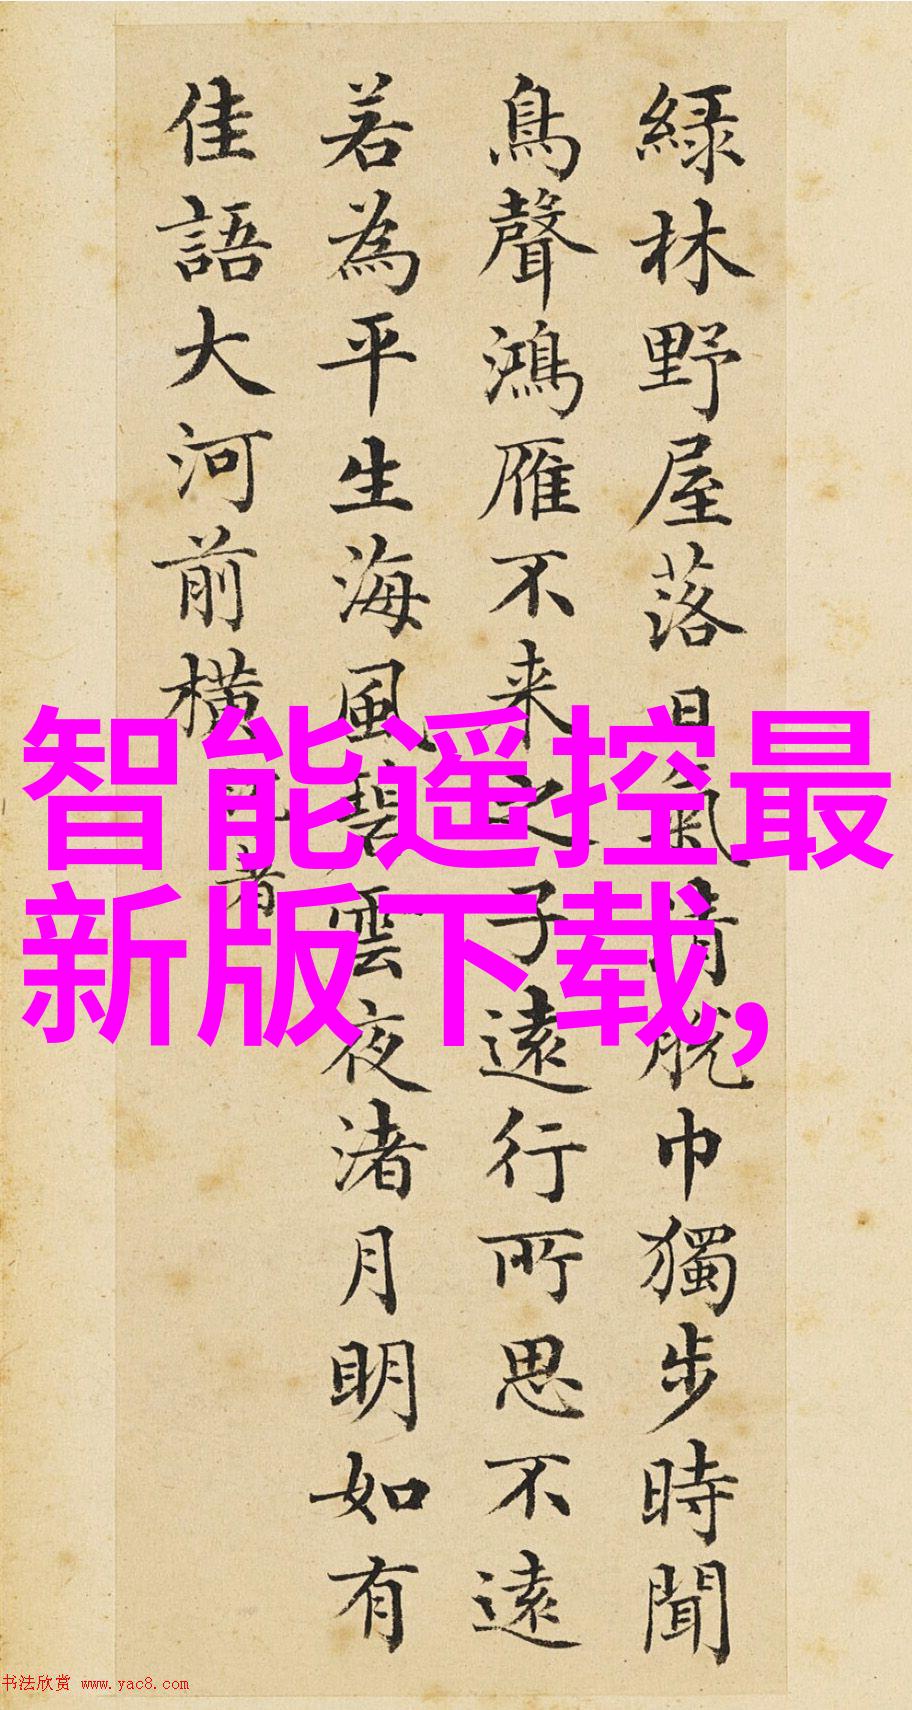 綠林野屋落日氣清脫巾獨步時聞
鳥聲鴻雁不来之子遠行所思不遠
若為平生海風碧雲夜渚月明如有
佳語大河前橫
者
智能遥控最
新版下载,
书法欣赏 www.yac8.com